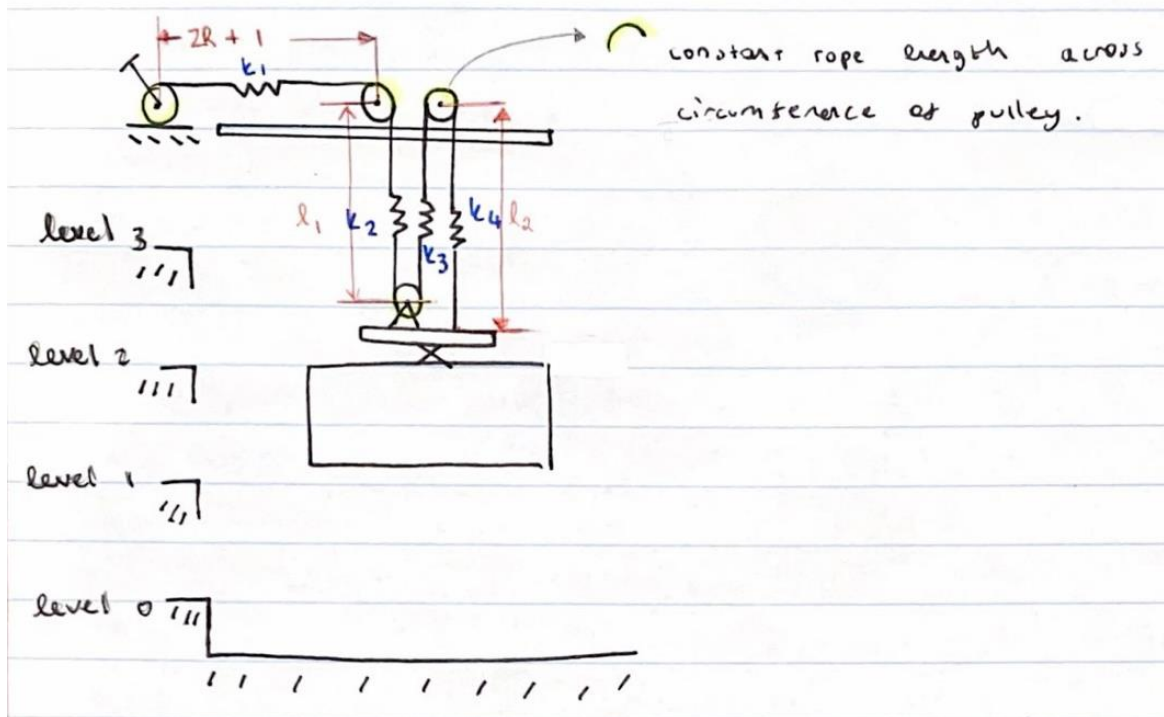 2R + 1
k1
constant rope length across
circumference of pulley.
level 3
l1
k2
k3
k4
l2
level 2
level 1
level 0